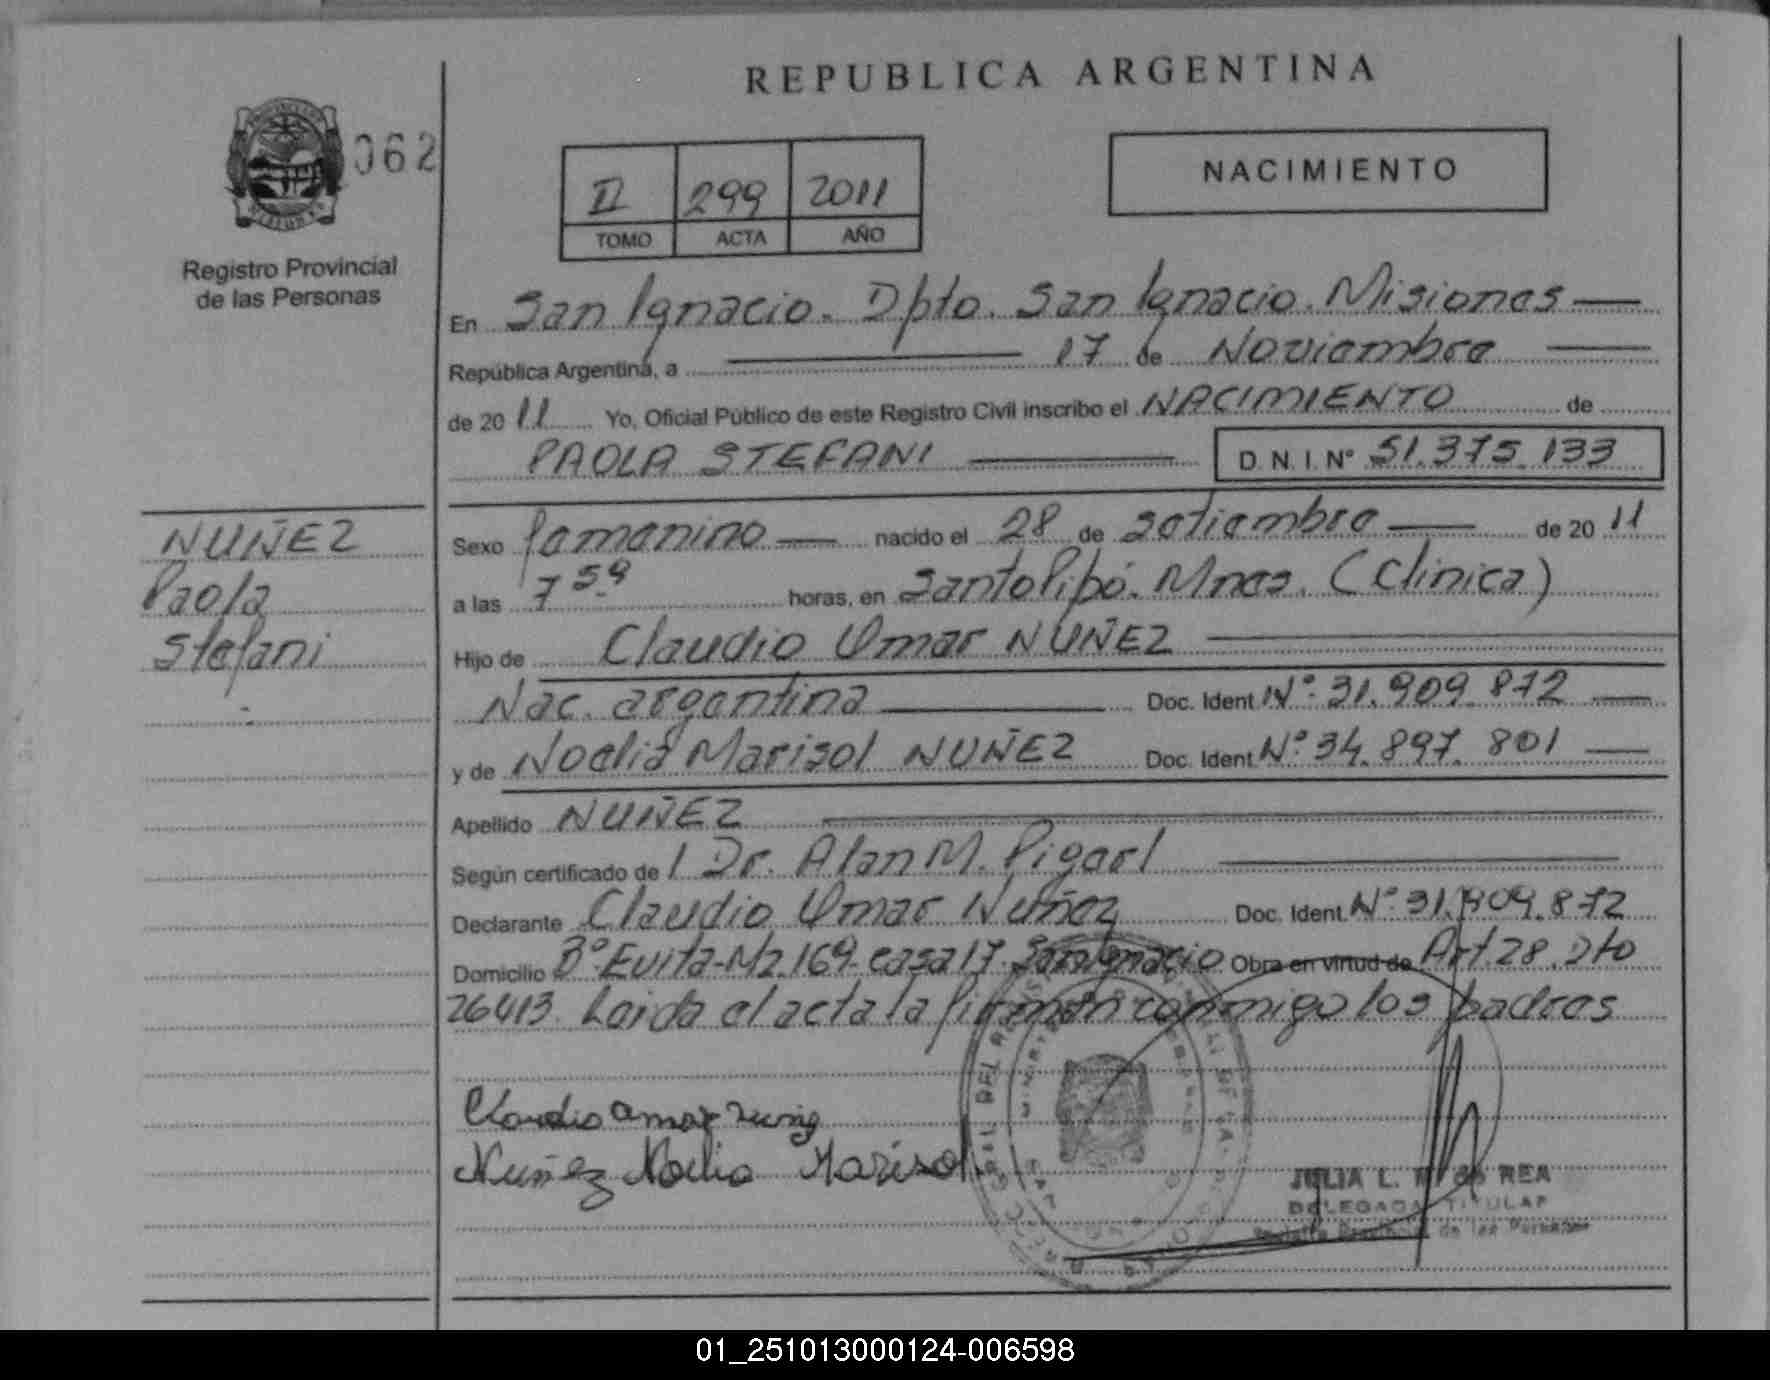 REPUBLICA ARGENTINA
062
II 299 2011
TOMO ACTA AÑO
NACIMIENTO
Registro Provincial
de las Personas
En San Ignacio. Dpto. San Ignacio. Misiones
República Argentina, a 17 de Noviembre
de 2011 Yo, Oficial Público de este Registro Civil inscribo el NACIMIENTO de
PAOLA STEFANI D.N.I. Nº 51.375.133
NUÑEZ
Paola
Stefani
Sexo femenino nacido el 28 de setiembre de 2011
a las 7 59 horas, en Santo Pipó. Mnes. (Clinica)
Hijo de Claudio Omar NUÑEZ
Nac. argentina Doc. Ident Nº 31.909.872
y de Noelia Marisol NUÑEZ Doc. Ident. Nº 34.897.801
Apellido NUÑEZ
Según certificado de l Dr. Alan M.
Declarante Claudio Omar Nuñez Doc. Ident. Nº 31.909.872
Domicilio Bº Evita-Mz.169-casa 17. San Ignacio Obra en virtud de Art. 28. Dto
26413. Leida el acta la firman conmigo los padres
Claudio Omar
Nuñez Noelia Marisol
JULIA L. de REA
DELEGADA TITULAR
de las Personas
01_251013000124-006598